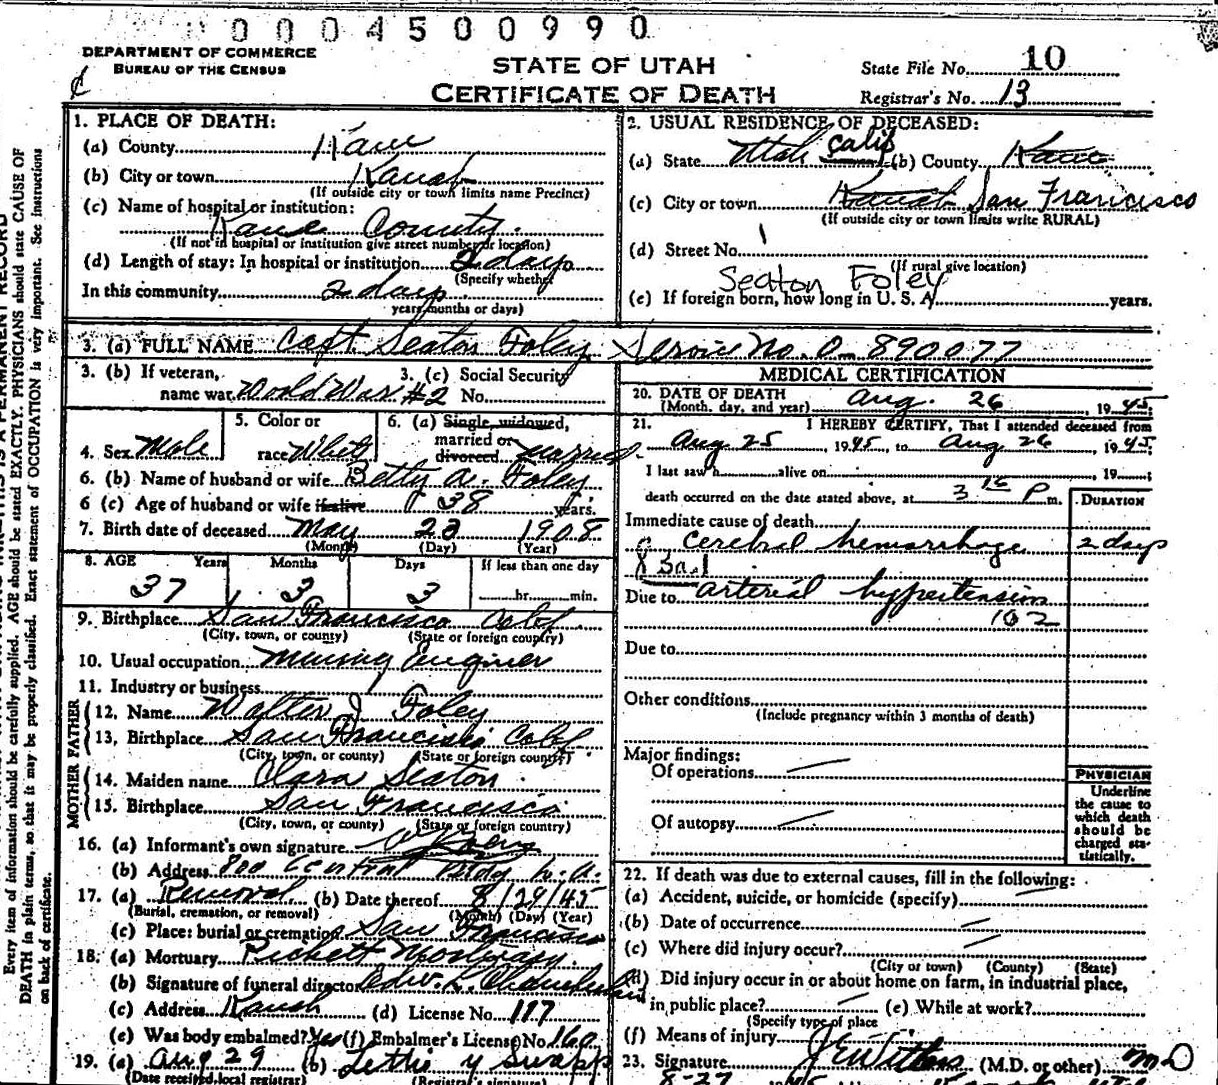 0004500990
DEPARTMENT OF COMMERCE
BUREAU OF THE CENSUS
STATE OF UTAH
CERTIFICATE OF DEATH
State File No. 10
Registrar's No. 13
Every item of information should be carefully supplied. AGE should be stated EXACTLY. PHYSICIANS should state CAUSE OF
DEATH in plain terms, so that it may be properly classified. Exact statement of OCCUPATION is very important. See instructions
on back of certificate.
1. PLACE OF DEATH:
(a) County Kane
(b) City or town Kanab
(If outside city or town limits name Precinct)
(c) Name of hospital or institution:
Kane County
(If not in hospital or institution give street number or location)
(d) Length of stay: In hospital or institution 2 days
(Specify whether
In this community 2 days
years, months or days)
2. USUAL RESIDENCE OF DECEASED:
(a) State Utah Calif (b) County Kane
(c) City or town Kanab San Francisco
(If outside city or town limits write RURAL)
(d) Street No. 1
(If rural give location)
Seaton Foley
(e) If foreign born, how long in U. S. A. years.
3. (a) FULL NAME Capt. Seaton Foley Service No. O-890077
3. (b) If veteran,
name war World War #2
3. (c) Social Security
No.
4. Sex Male
5. Color or
race White
6. (a) Single, widowed,
married or
divorced married
6. (b) Name of husband or wife Betty A. Foley
6 (c) Age of husband or wife if alive 38 years.
7. Birth date of deceased May 23 1908
(Month) (Day) (Year)
8. AGE Years Months Days If less than one day
37 3 3 hr. min.
9. Birthplace San Francisco Calif.
(City, town, or county) (State or foreign country)
10. Usual occupation Mining Enginer
11. Industry or business
FATHER
12. Name Walter J. Foley
13. Birthplace San Francisco Calif.
(City, town, or county) (State or foreign country)
MOTHER
14. Maiden name Clara Seaton
15. Birthplace San Francisco
(City, town, or county) (State or foreign country)
16. (a) Informant's own signature
(b) Address 800 Central Bldg L.A.
17. (a) Removal (b) Date thereof 8/29/45
(Burial, cremation, or removal) (Month) (Day) (Year)
(c) Place: burial or cremation San Francisco
18. (a) Mortuary Pickett Mortuary
(b) Signature of funeral director Edw. L. Chamberlain
(c) Address Kanab (d) License No. 117
(e) Was body embalmed? Yes (f) Embalmer's License No. 160
19. (a) Aug 29 (b) Lettie Y Swapp
(Date received local registrar) (Registrar's signature)
MEDICAL CERTIFICATION
20. DATE OF DEATH
(Month, day, and year) Aug. 26, 1945
21. I HEREBY CERTIFY, That I attended deceased from
Aug 25 1945, to Aug 26 1945
I last saw h alive on 19
death occurred on the date stated above, at 3 P m.
DURATION
Immediate cause of death
cerebral hemorrhage 2 days
83a.1
Due to arterial hypertension
102
Due to
Other conditions
(Include pregnancy within 3 months of death)
Major findings:
Of operations
Of autopsy
PHYSICIAN
Underline
the cause to
which death
should be
charged sta-
tistically.
22. If death was due to external causes, fill in the following:
(a) Accident, suicide, or homicide (specify)
(b) Date of occurrence
(c) Where did injury occur?
(City or town) (County) (State)
(d) Did injury occur in or about home on farm, in industrial place,
in public place? (e) While at work?
(Specify type of place
(f) Means of injury
23. Signature (M.D. or other) M.D
8-27